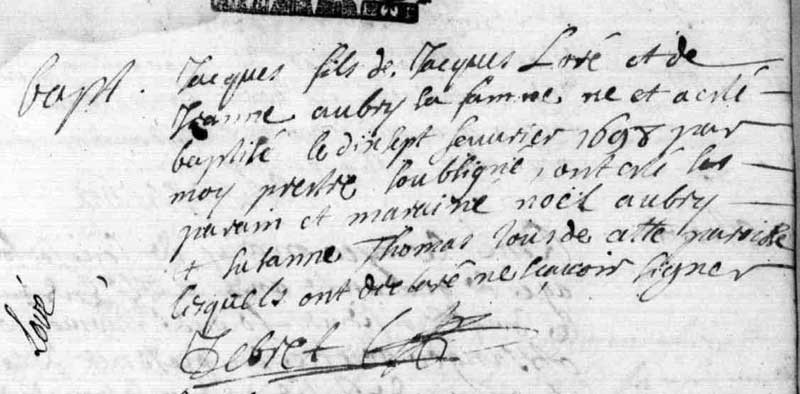 bapt.
Jacques fils de Jacques Loré et de
Jeanne aubry sa famme, ne et a esté
baptisé le dixsept feuvrier 1698 par
moy prestre soubligné, ont esté les
parain et maraine noël aubry
et Suzanne Thomas tous de cette paroisse
lesquels ont declaré ne sçavoir signer
Lové